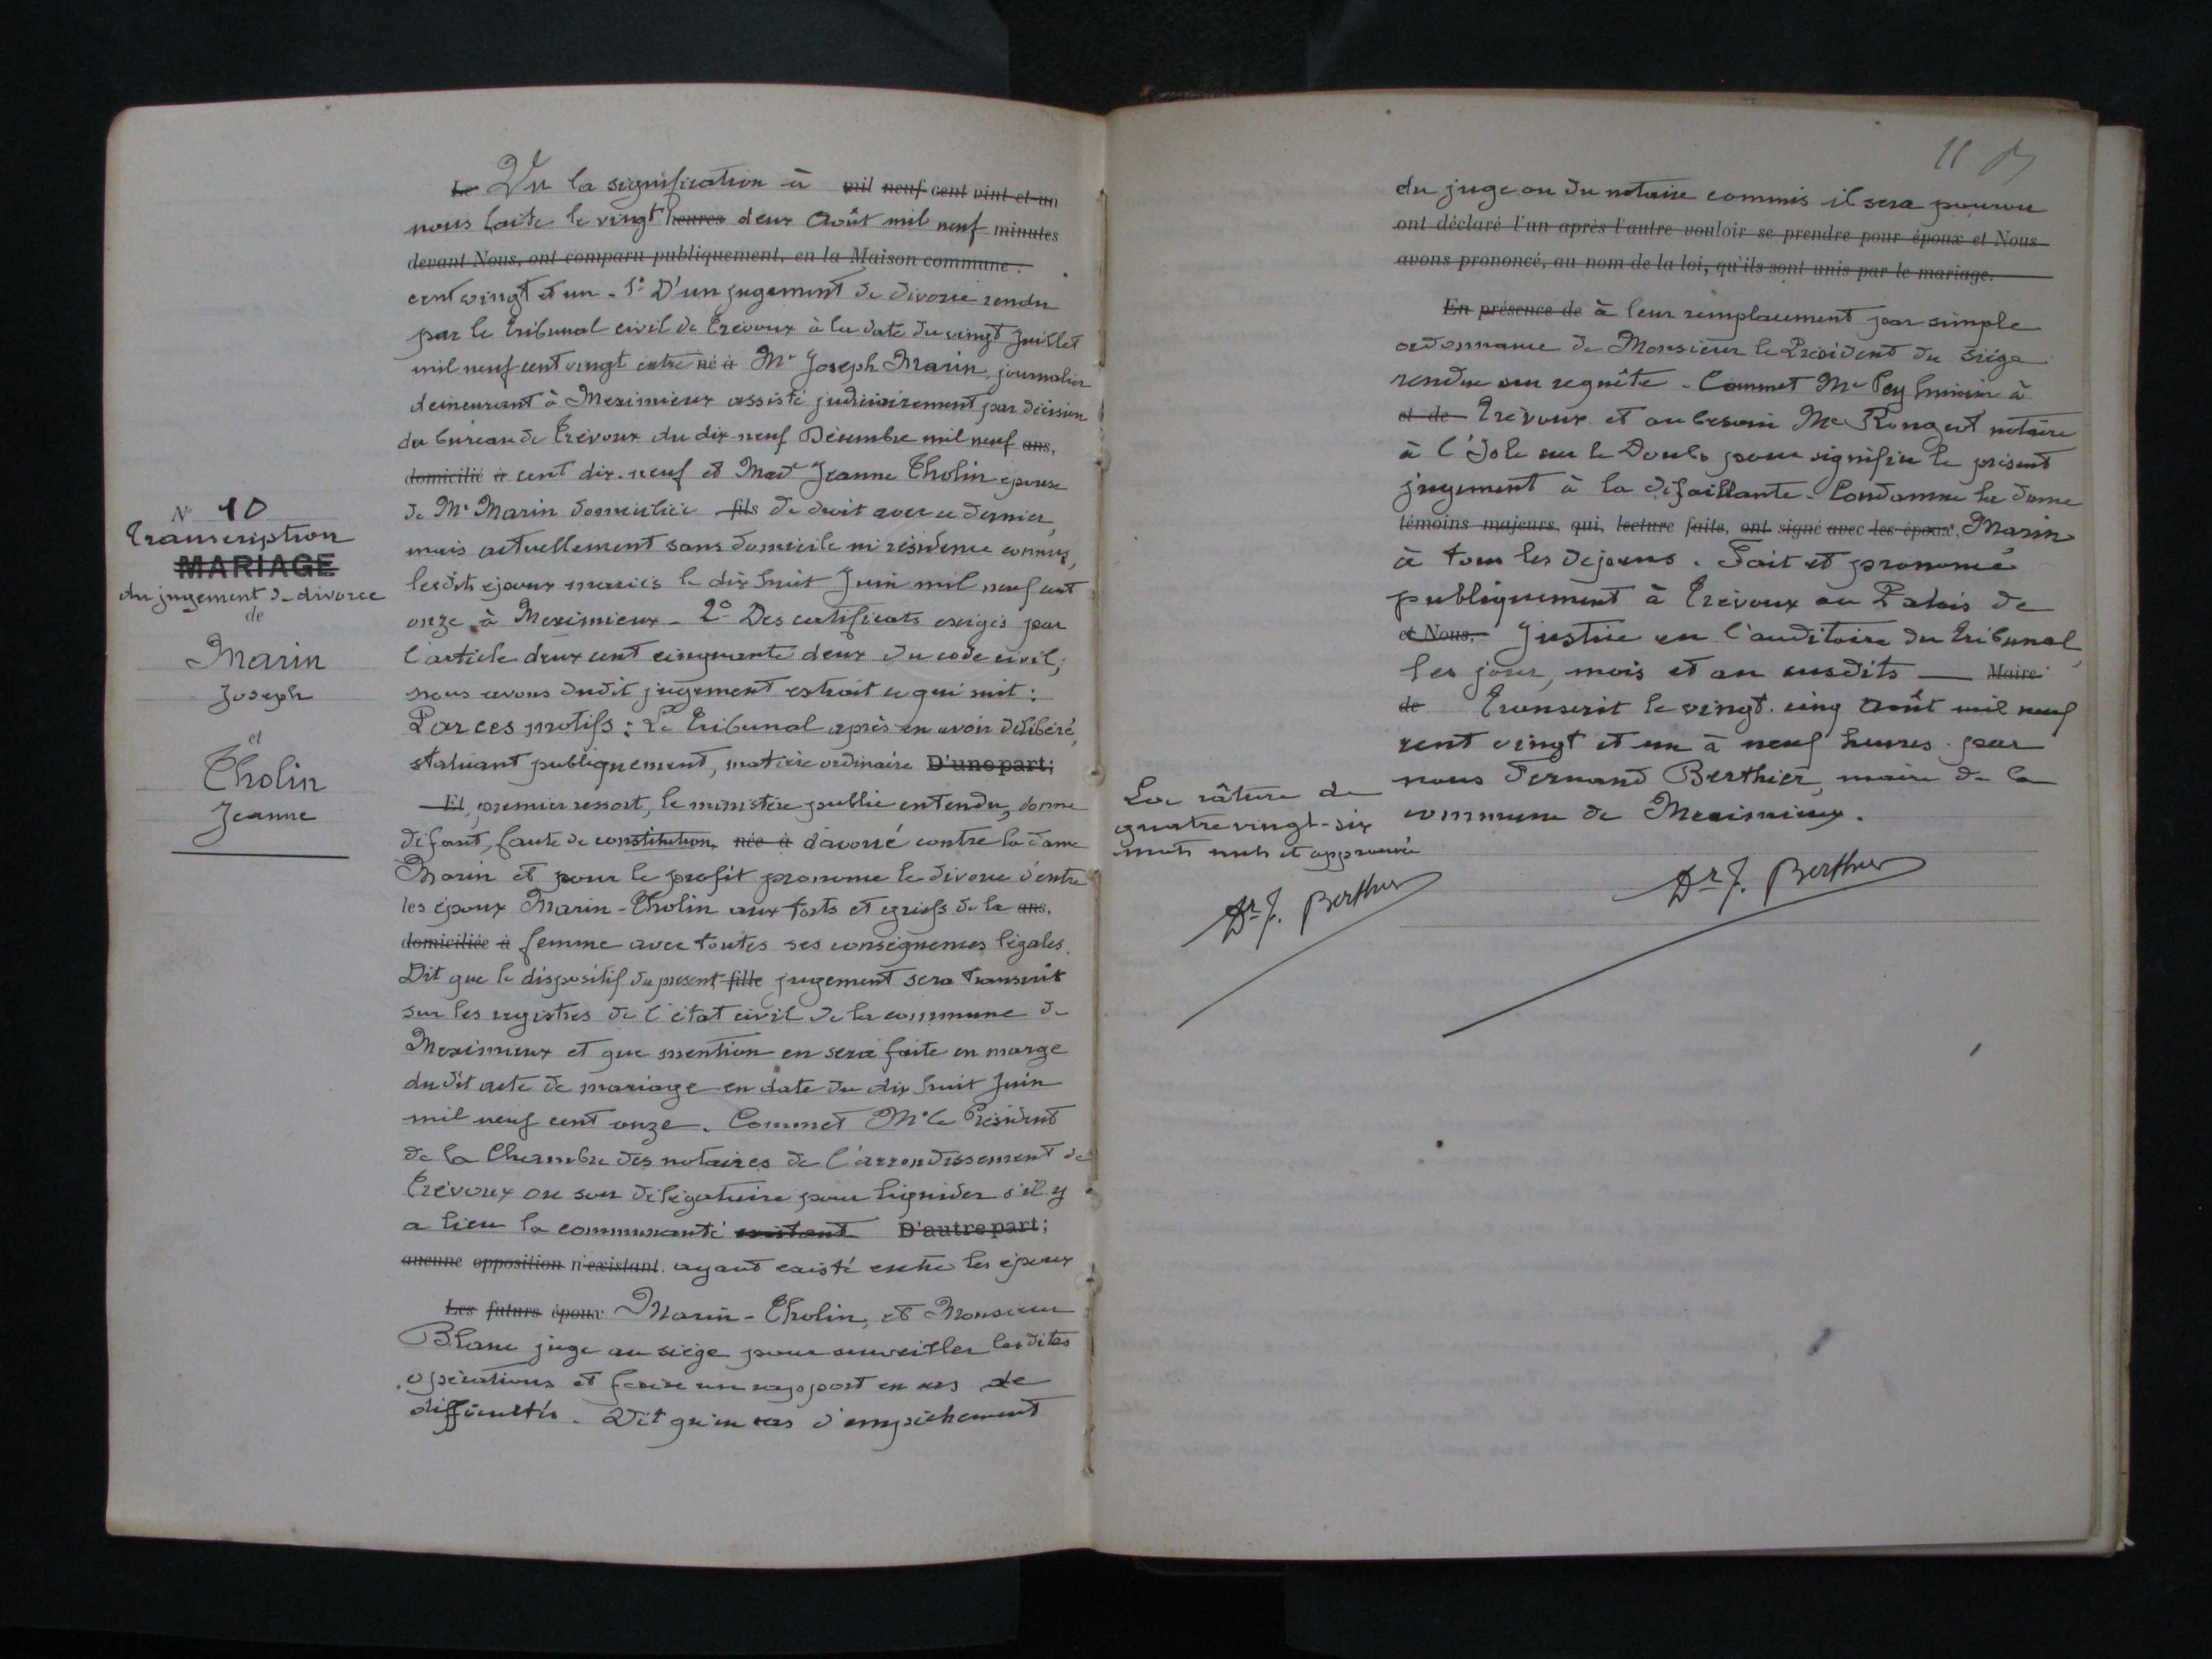 N° 10
Transcription
MARIAGE
du jugement de divorce
de
Marin
Joseph
et
Tholin
Jeanne
Le Vu la signification à mil neuf cent vint et un
nous faite le vingt heures deux Août mil neuf minutes
devant Nous, ont comparu publiquement, en la Maison commune :
cent vingt et un - 1° D'un jugement de divorce rendu
par le Tribunal civil de Trévoux à la date du vingt Juillet
mil neuf cent vingt entre né à Mr Joseph Marin, journalier
demeurant à Meximieux assisté judiciairement par décision
du bureau de Trévoux du dix-neuf Décembre mil neuf ans,
domicilié à cent dix-neuf et Mad Jeanne Tholin épouse
de Mr Marin domiciliée fils de droit avec ce dernier,
mais actuellement sans domicile ni résidence connus,
lesdits époux mariés le dix huit Juin mil neuf cent
onze à Meximieux - 2° Des certificats exigés par
l'article deux cent cinquante deux du code civil;
nous avons dudit jugement extrait ce qui suit :
Par ces motifs : Le Tribunal après en avoir délibéré,
statuant publiquement, matière ordinaire D'une part;
Et premier ressort, le ministère public entendu, donne
défaut, faute de constitution, née à d'avoué contre la dame
Marin et pour le profit prononce le divorce d'entre
les époux Marin-Tholin aux torts et griefs de la ans,
domiciliée à femme avec toutes ses conséquences légales.
Dit que le dispositif du présent fille jugement sera transcrit
sur les registres de l'état civil de la commune de
Meximieux et que mention en sera faite en marge
du dit acte de mariage en date du dix huit Juin
mil neuf cent onze. Commet Mr le Président
de la Chambre des notaires de l'arrondissement de
Trévoux ou son délégataire pour liquider s'il y
a lieu la communauté existant D'autre part;
aucune opposition n'existant. ayant existé entre les époux
Les futurs époux Marin-Tholin, et Monsieur
Blanc juge au siège pour surveiller lesdites
opérations et faire un rapport en cas de
difficultés. Dit qu'en cas d'empêchement
11
du juge ou du notaire commis il sera pourvu
ont déclaré l'un après l'autre vouloir se prendre pour époux et Nous
avons prononcé, au nom de la loi, qu'ils sont unis par le mariage.
En présence de à leur remplacement par simple
ordonnance de Monsieur le Président du siège
rendue sur requête. Commet Me huissier à
et de Trévoux et au besoin Me Rongeot notaire
à l'Isle sur le Doubs pour signifier le présent
jugement à la défaillante. Condamne la dame
témoins majeurs, qui, lecture faite, ont signé avec les époux, Marin
à tous les dépens. Fait et prononcé
publiquement à Trévoux au Palais de
et Nous, Justice en l'auditoire du Tribunal,
les jour, mois et an susdits — Maire
de Transcrit le vingt-cinq Août mil neuf
cent vingt et un à neuf heures par
nous Fernand Berthier, maire de la
commune de Meximieux.
Dr F. Berthier
La râture de
quatre vingt-six
mots nuls et approuvée
Dr F. Berthier